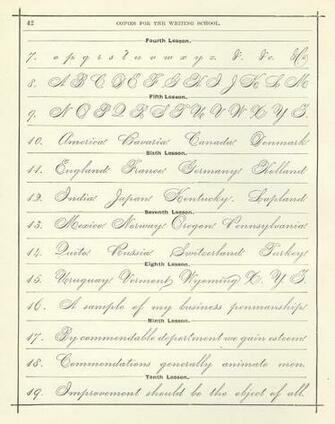 42 COPIES FOR THE WRITING SCHOOL.
Fourth Lesson.
7. o p q r s t u v w x y z. &. &c. &Co
8. A B C D E F G H I J K L M
Fifth Lesson.
9. N O P Q R S T U V W X Y Z.
10. America Bavaria Canada Denmark
Sixth Lesson.
11. England France Germany Holland
12. India Japan Kentucky. Lapland
Seventh Lesson.
13. Mexico Norway Oregon Pennsylvania
14. Quito Russia Switzerland Turkey
Eighth Lesson.
15. Uruguay Vermont Wyoming X. Y. Z.
16. A sample of my business penmanship
Ninth Lesson.
17. By commendable deportment we gain esteem
18. Commendations generally animate men.
Tenth Lesson.
19. Improvement should be the object of all.